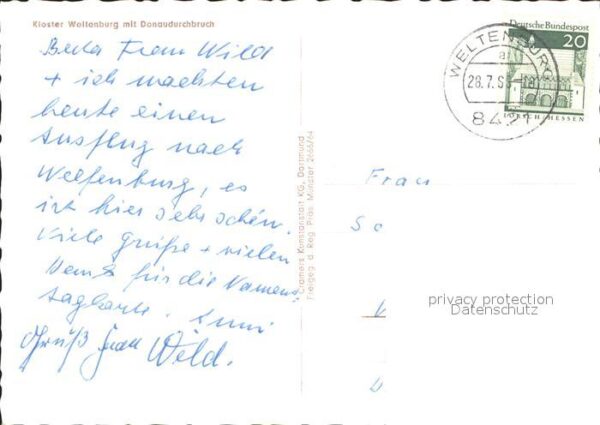 Kloster Weltenburg mit Donaudurchbruch
Frau Wild
+ ich machten
heute einen
Ausflug nach
Weltenburg, es
ist hier sehr schön.
Viele Grüße + vielen
Dank für die Namens
tagkarte. Anni
Gruß Frau Wild.
Cramers Kunstanstalt KG, Dortmund
Freigeg. d. Reg. Präs. Münster 2666/64
Deutsche Bundespost
20
LORSCH·HESSEN
WELTENBURG
8421
Frau
privacy protection
Datenschutz